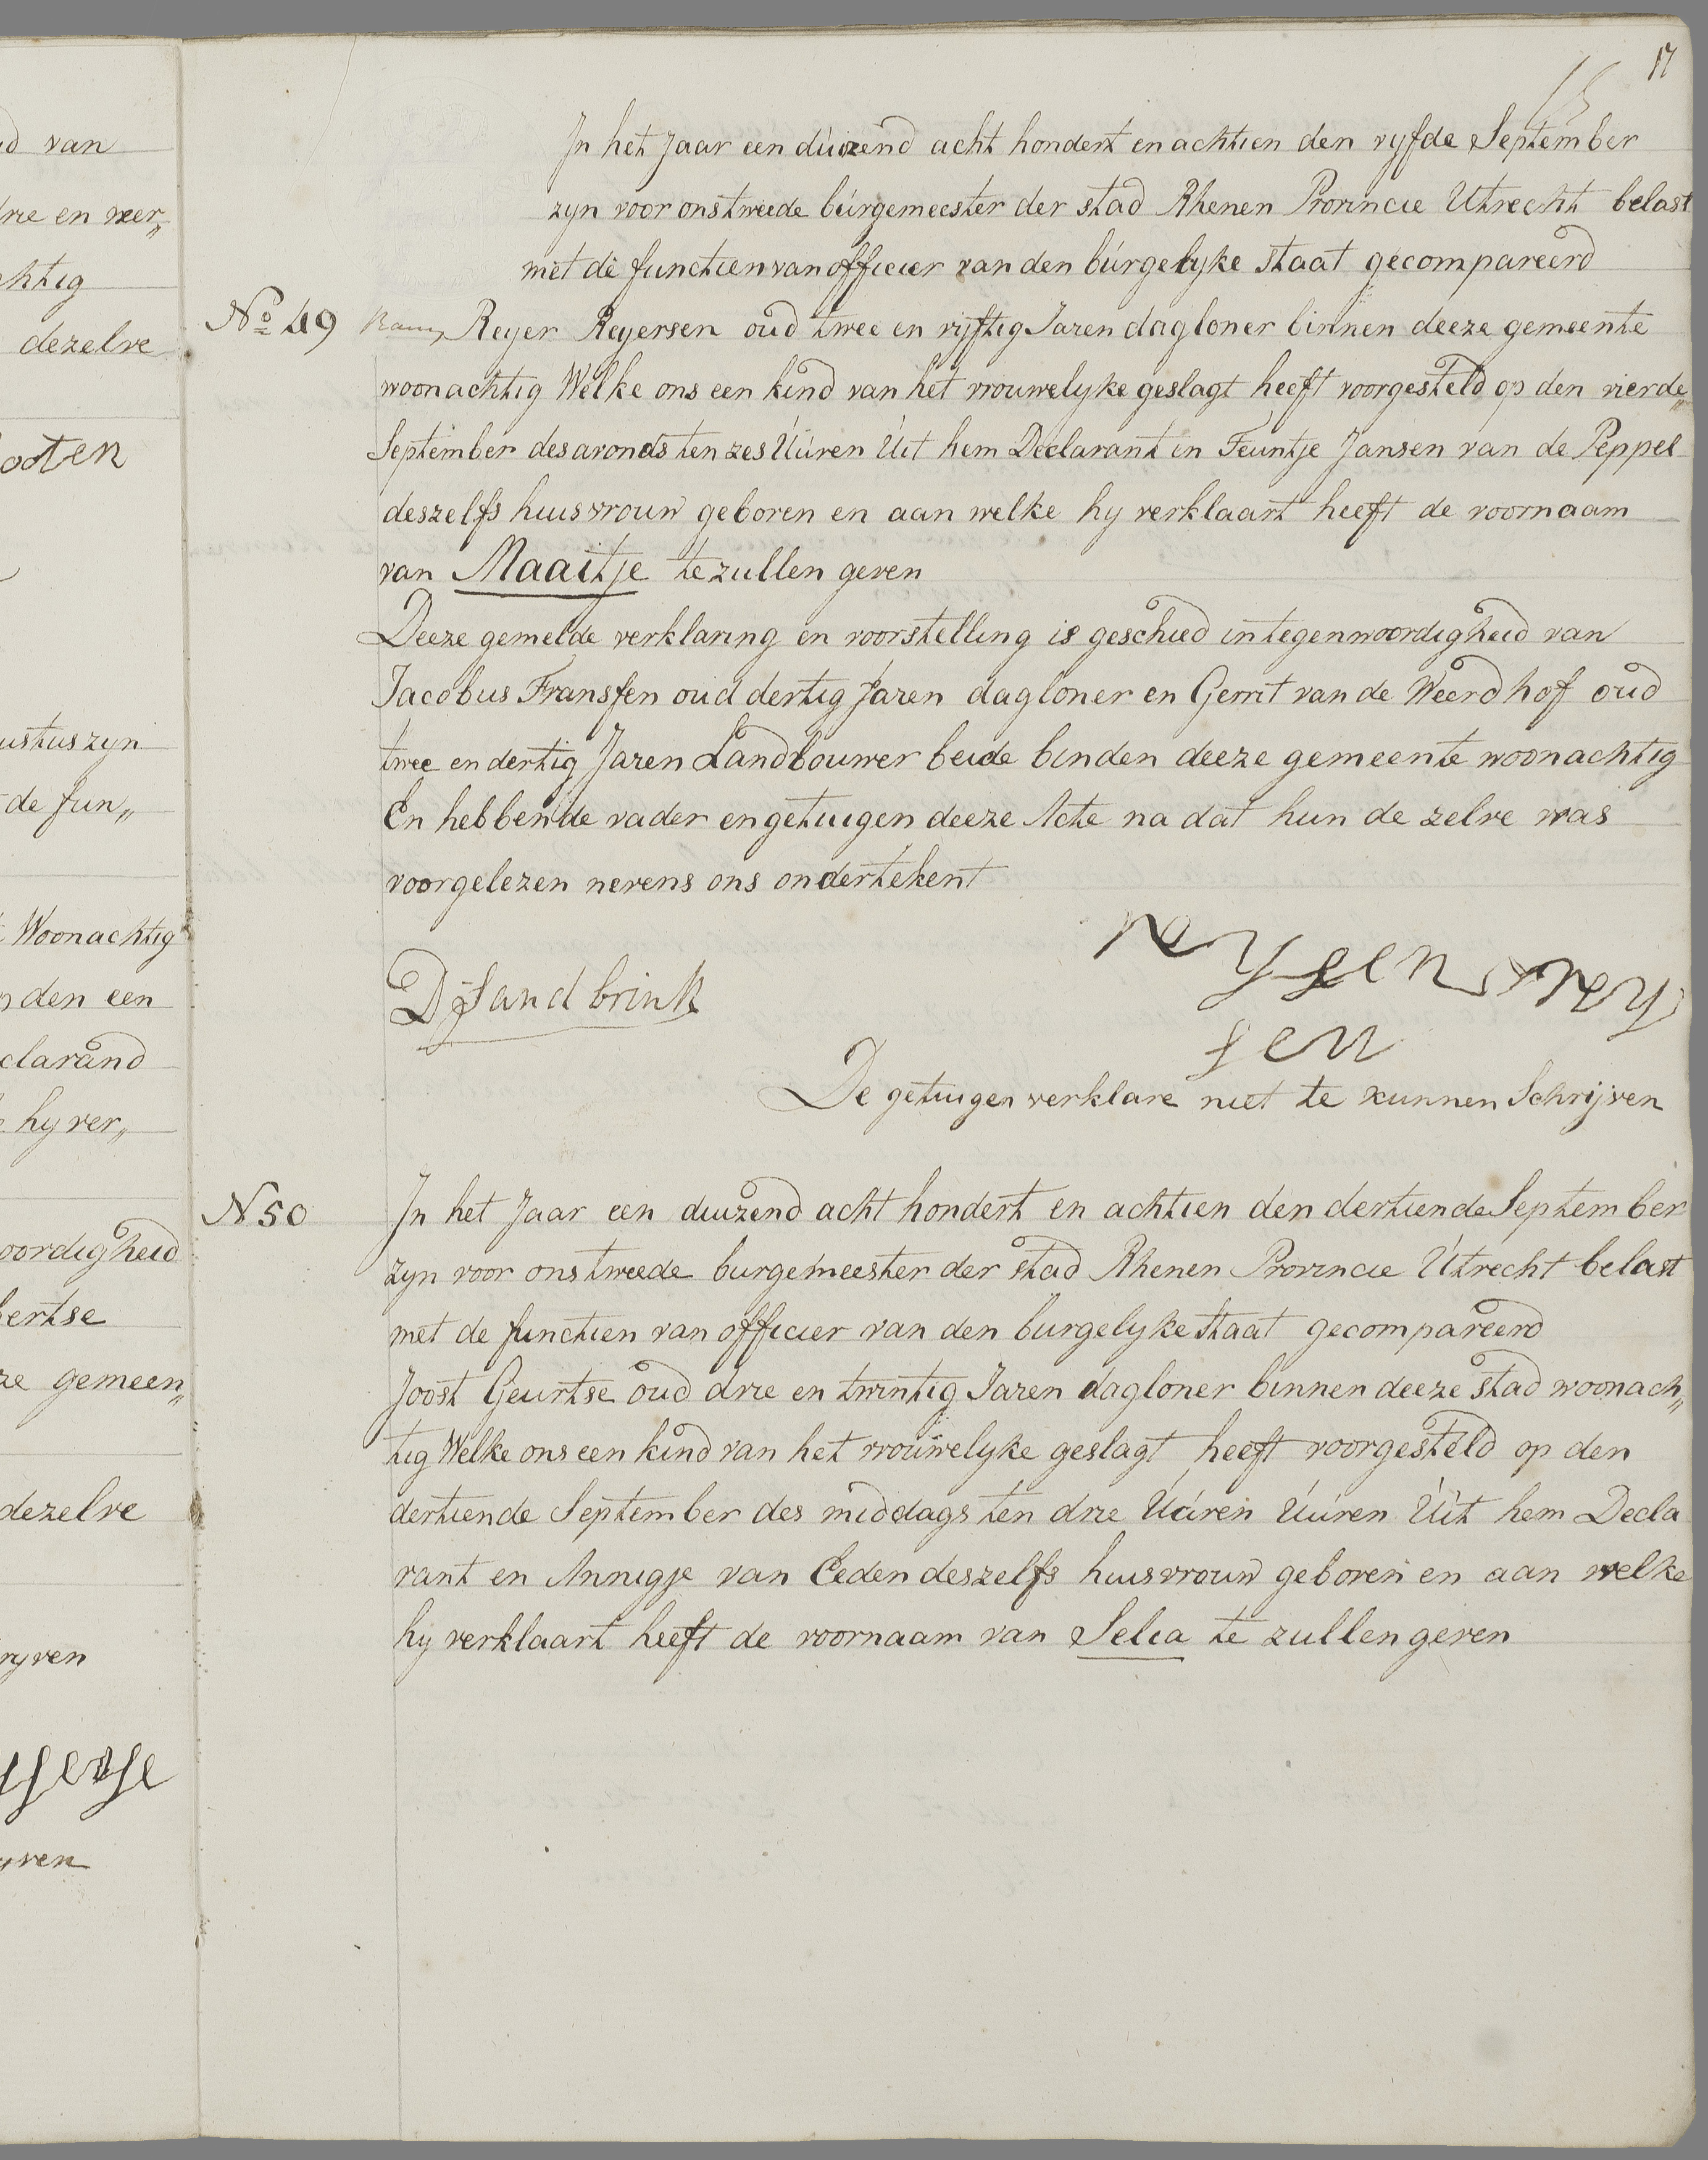 d van
drie en veer„
chtig
dezelve
ooten
ustus zyn
de fun„
t Woonachtig
den een
clarand
hy ver„
oordigheid
bertse
ze gemeen„
dezelve
ryven
yven
17
In het Jaar een duizend acht hondert en achtien den vyfde September
zyn voor ons tweede burgemeester der stad Rhenen Provincie Utrecht belast
met de functien van officier van den burgelyke staat gecompareerd
No 49 Reyer Reyersen oud twee en vyftig Jaren dagloner binnen deeze gemeente
woonachtig Welke ons een kind van het vrouwelyke geslagt heeft voorgesteld op den vierde„
September des avonds ten zes Uuren Uit hem Declarant en Teuntje Jansen van de Peppel
deszelfs huisvrouw geboren en aan welke hy verklaart heeft de voornaam
van Maaitje te zullen geven
Deeze gemelde verklaring en voorstelling is geschied in tegenwoordigheid van
Jacobus Fransfen oud dertig Jaren dagloner en Gerrit van de Weerdhof oud
twee en dertig Jaren Landbouwer beide binden deeze gemeente woonachtig
En hebben de vader en getuigen deeze Acte na dat hun de zelve was
voorgelezen nevens ons ondertekent
reysen rey
DJ Sandbrink
sen
De getuigen verklare niet te kunnen Schrijven
N 50 In het Jaar een duizend acht hondert en achtien den dertiende September
zyn voor ons tweede burgemeester der stad Rhenen Provincie Utrecht belast
met de functien van officier van den burgelyke staat gecompareerd
Joost Geurtse oud drie en twintig Jaren dagloner binnen deeze stad woonach„
tig Welke ons een kind van het vrouwelyke geslagt heeft voorgesteld op den
dertiende September des middags ten drie Uuren Uuren Uit hem Decla
rant en Annigje van Eeden deszelfs huisvrouw geboren en aan welke
hy verklaart heeft de voornaam van Selia te zullen geven